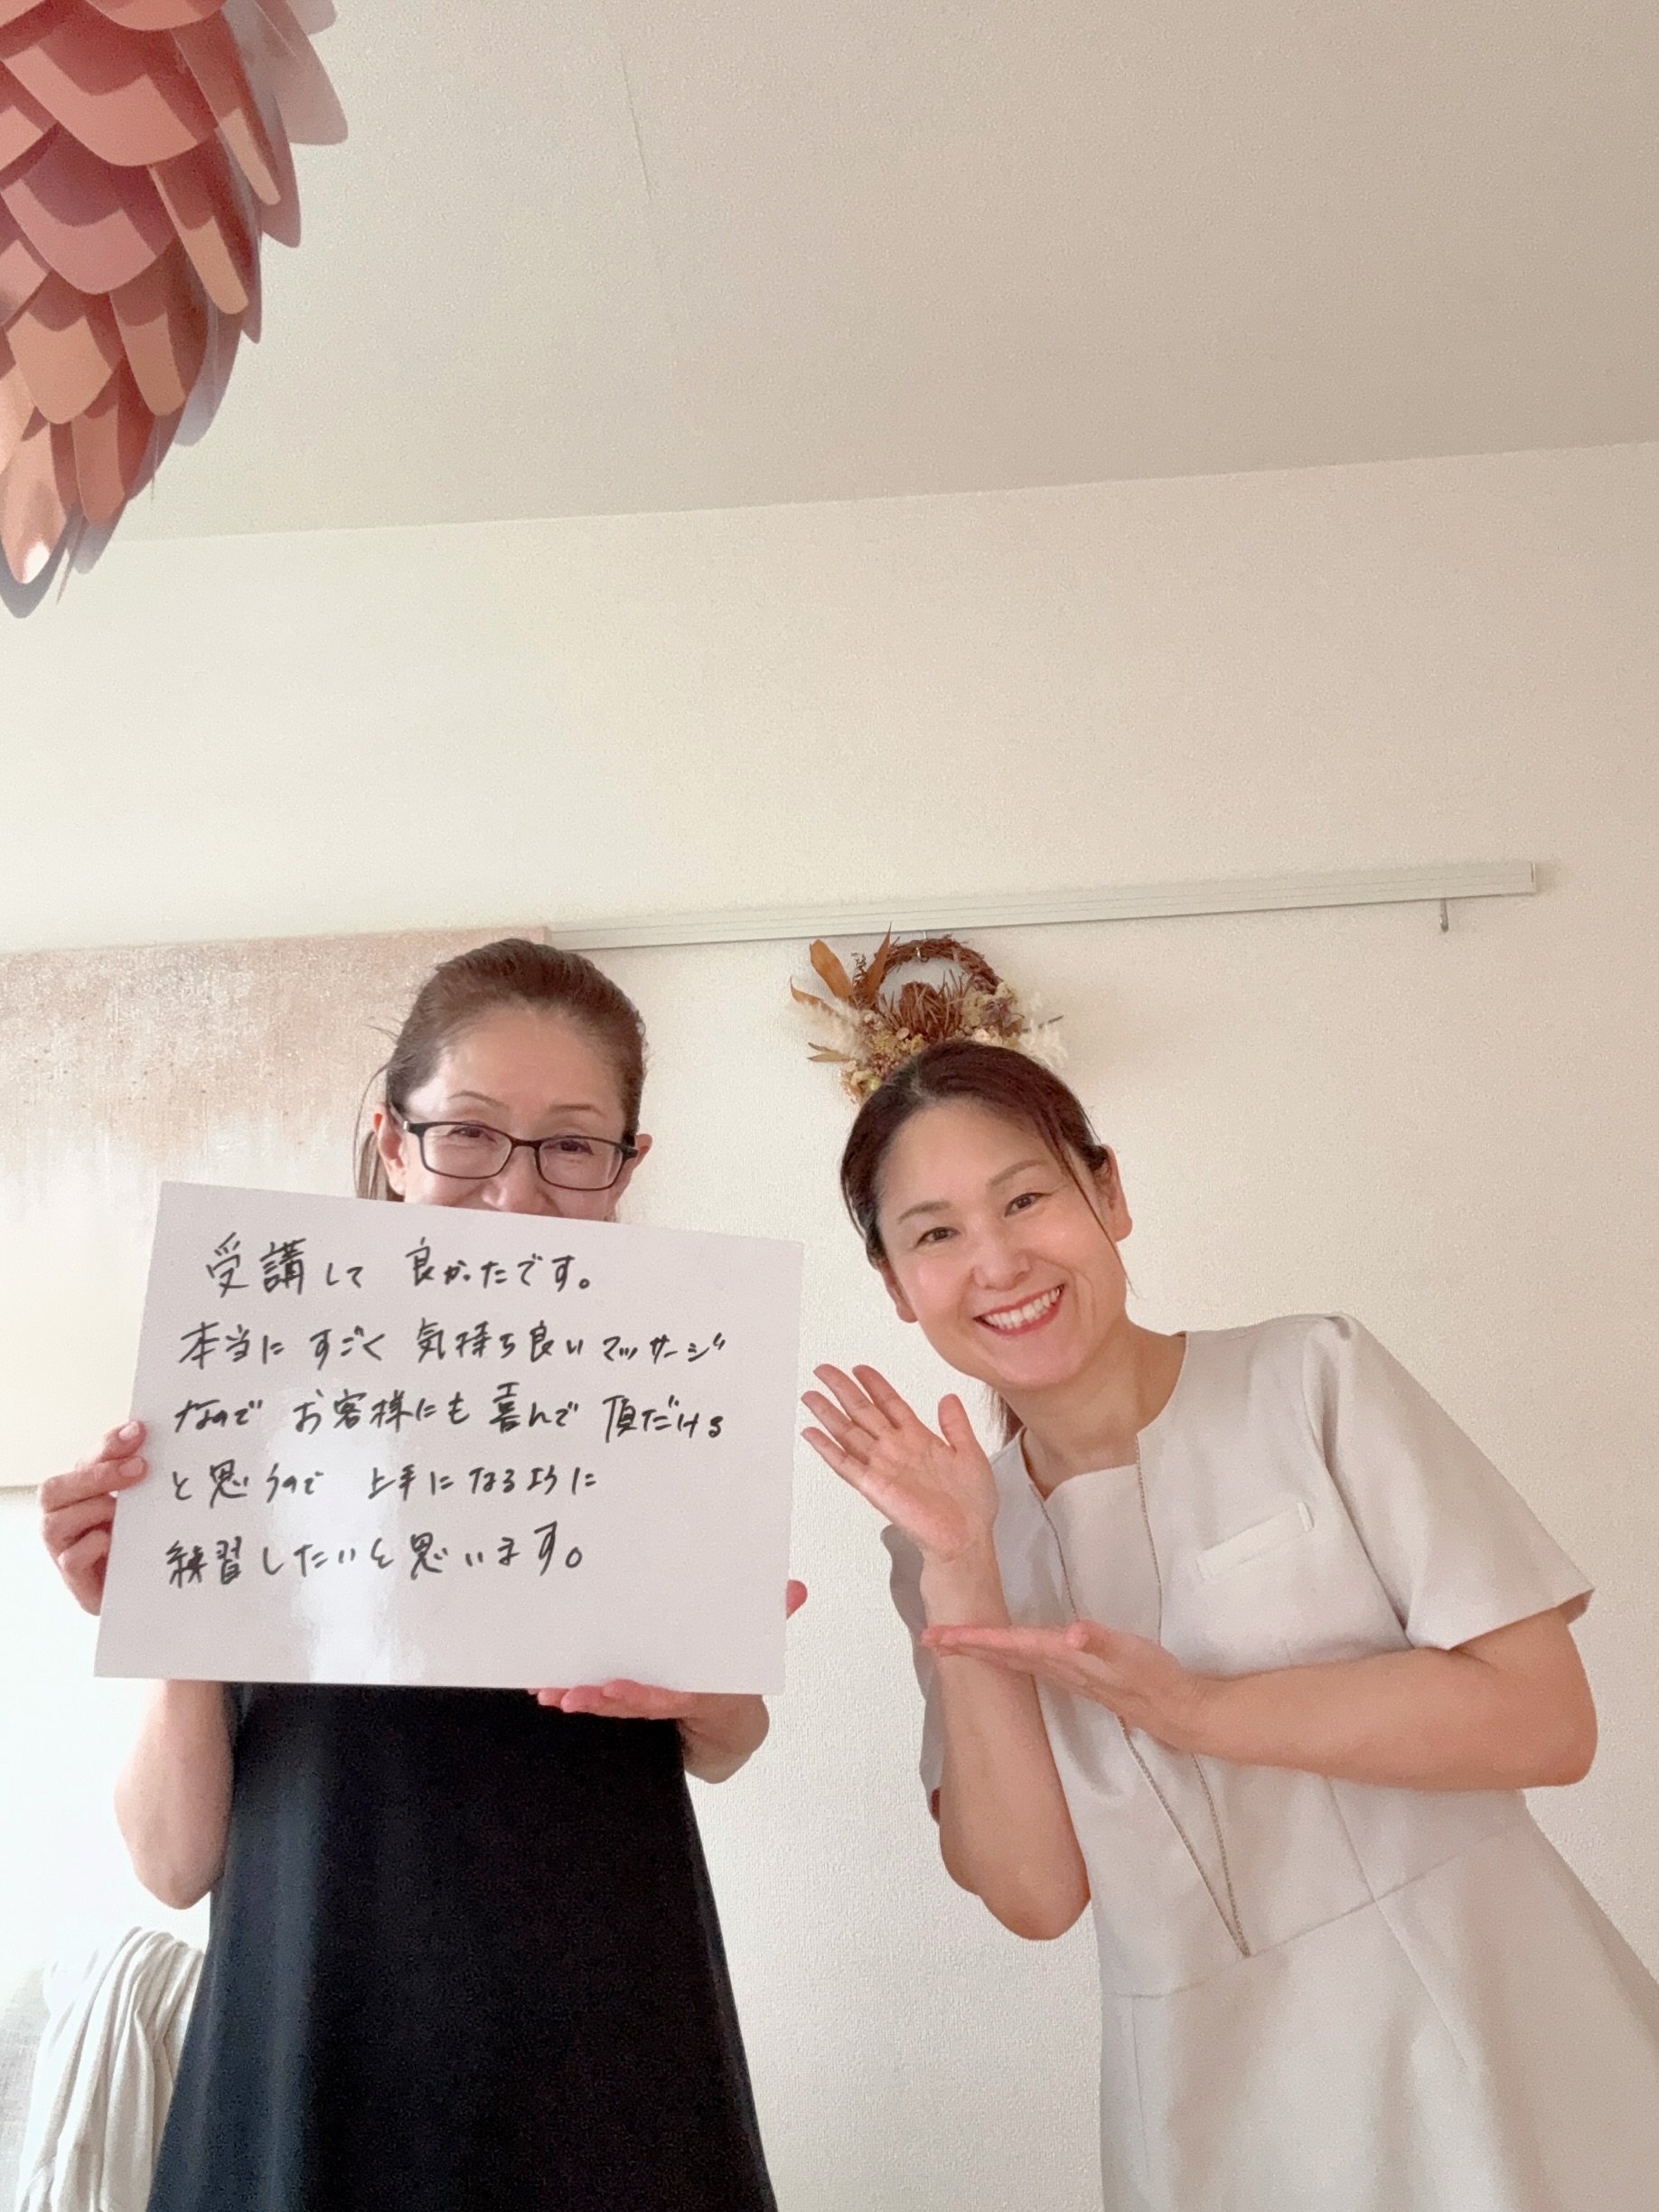 受講して 良かったです。
本当に すごく 気持ち良い マッサージ
なので お客様にも 喜んで 頂だける
と思うので 上手になるように
練習したいと思います。